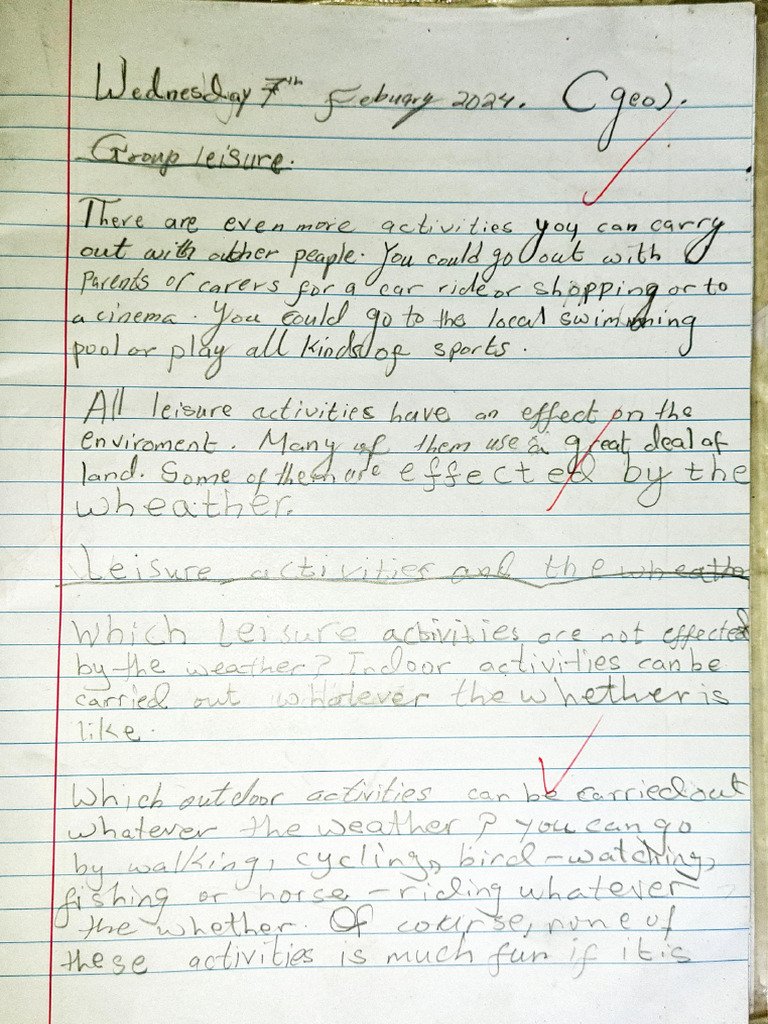 Wednesday 7th Febuary 2024. (geo).
Group leisure.
There are even more activities yoy can carry
out with outher peaple. You could go out with
parents or carers for a car ride or shopping or to
a cinema. You could go to the local swimming
pool or play all kinds of sports.
All leisure activities have an effect on the
enviroment. Many of them use a great deal of
land. Some of them are effected by the
wheather.
Leisure activities and the wheath
Which Leisure activities are not effected
by the weather? Indoor activities can be
carried out whatever the whether is
like.
Which outdoor activities can be carried out
whatever the weather? you can go
by walking, cycling, bird-watching,
fishing or horse-riding whatever
the whether. Of course, none of
these activities is much fun if it is